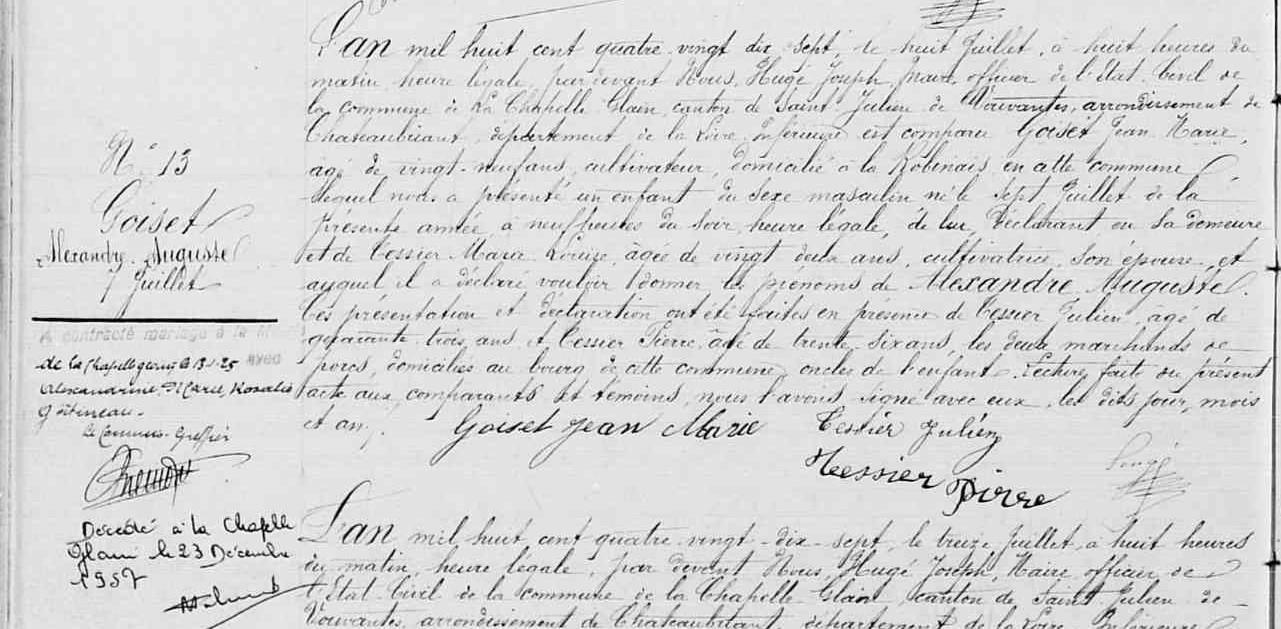 N° 13
Goiset
Alexandre Auguste
7 Juillet
A contracté mariage à la Mairie
de la Chapelle glain le 13-1-25 avec
Alexandrine Marie Rosalie
Gatineau.
Le Commis-Greffier
Décédé à la Chapelle
Glain le 23 Décembre
1957
L'an mil huit cent quatre vingt dix sept, le huit Juillet, à huit heures du
matin heure légale, par devant Nous, Hugé Joseph, Maire officier de l'Etat Civil de
la commune de La Chapelle Glain, canton de Saint Julien de Vouvantes, arrondissement de
Chateaubriant, département de la Loire Inférieure est comparu Goiset Jean Marie,
âgé de vingt-neuf ans, cultivateur, domicilié à la Robinais en cette commune
lequel nous a présenté un enfant du sexe masculin né le sept Juillet de la
présente année à neuf heures du soir, heure légale, de lui, Déclarant en sa demeure
et de Tessier Marie Louise, âgée de vingt deux ans, cultivatrice, son épouse, et
auquel il a déclaré vouloir donner les prénoms de Alexandre Auguste.
Ces présentation et déclaration ont été faites en présence de Tessier Julien, agé de
quarante trois ans et Tessier Pierre, âgé de trente-six ans, les deux marchands de
porcs, domiciliés au bourg de cette commune, oncles de l'enfant. Lecture faite du présent
acte aux comparants et témoins, nous l'avons signé avec eux, les dits jour, mois
et an.
Goiset Jean Marie Tessier Julien
Tessier Pierre
Hugé
L'an mil huit cent quatre-vingt-dix-sept, le treize Juillet, à huit heures
du matin, heure légale, par devant Nous, Hugé Joseph, Maire officier de
l'Etat Civil de la commune de la Chapelle Glain, canton de Saint Julien de
Vouvantes, arrondissement de Chateaubriant, département de la Loire Inférieure